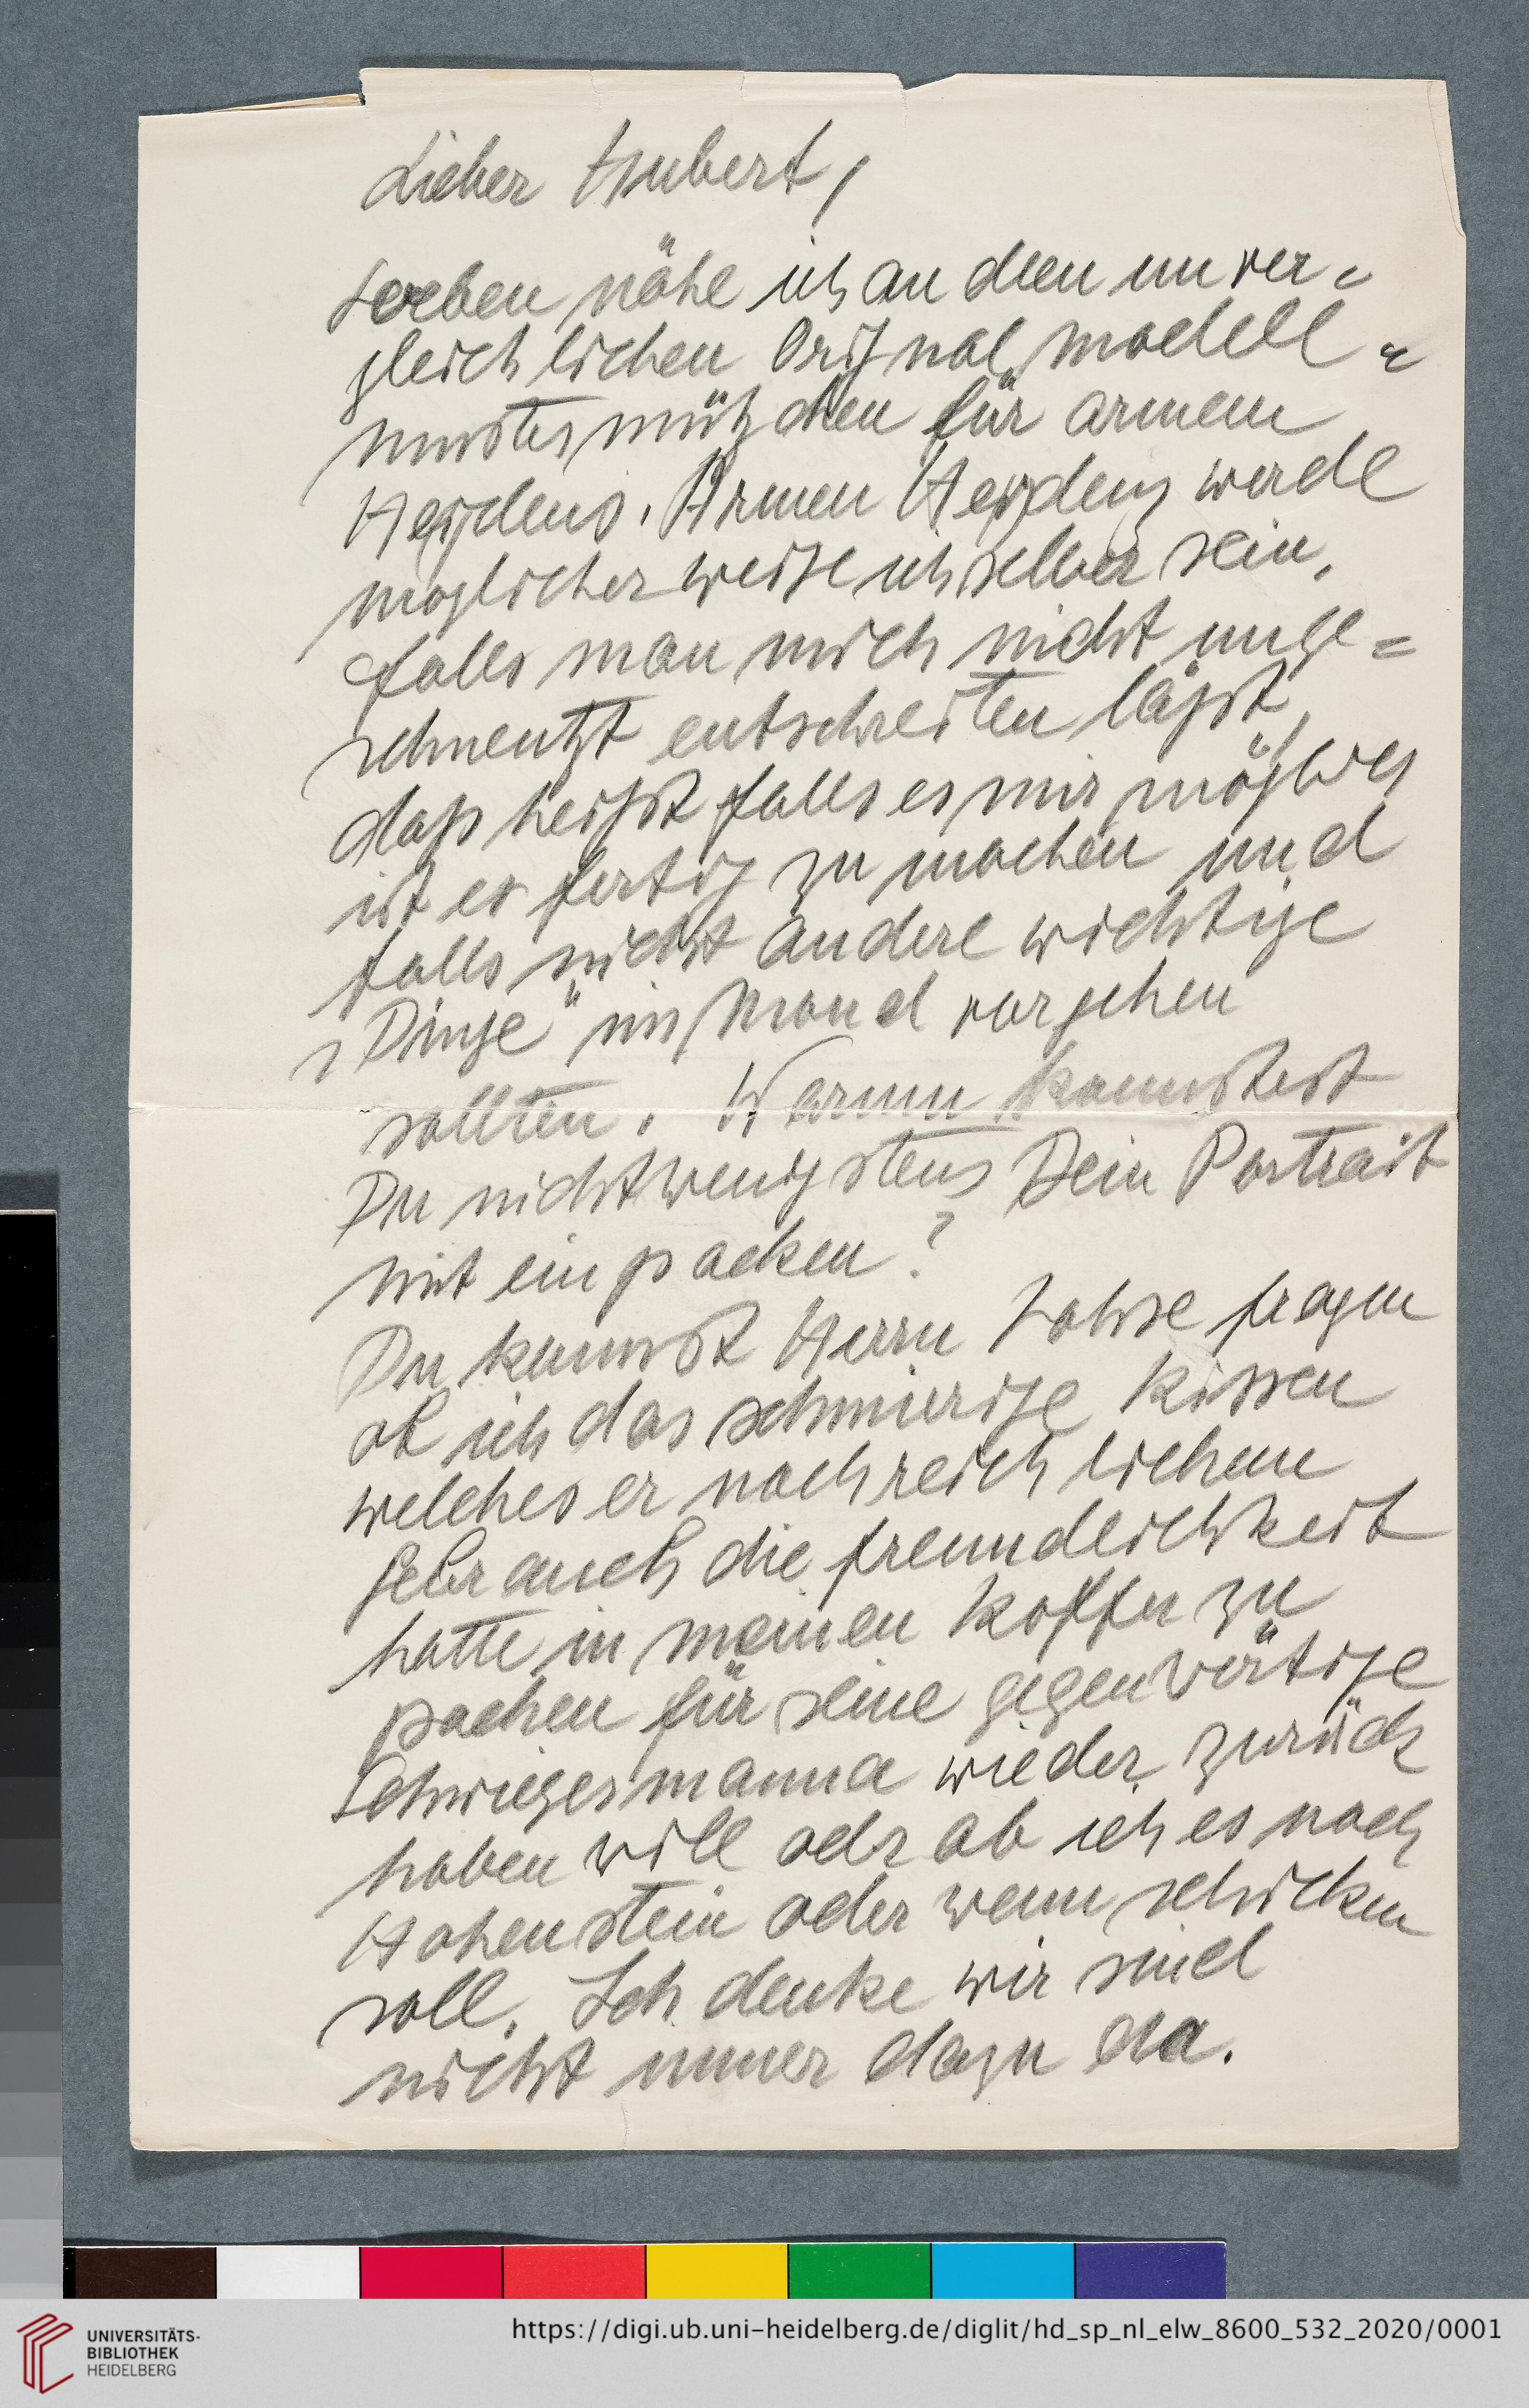 Lieber Hubert,
soeben nähe ich an dem unver=
gleichlichen Orignal modell=
mustermützchen für armem
Heydens. Armen Heydens werde
moglicherweise ich selber sein,
falls man mich nicht unge=
schneutzt entschreiten läßt,
daß heißt falls es mir möglich
ist es fertig zu machen und
falls nicht andere wichtige
„Dinge" im Mond vorgehen
sollten. Warum konntest
Du nicht wenigstens Dein Portrait
mit einpacken?
Du kannst Herrn Lohse fragen
ob ich das schmierige Kissen
welches er nach reichlichem
gebrauch die freundlichkeit
hatte in meinen Koffer zu
pachen für seine gegenwärtige
Schwiegermanna wieder zurück
haben will odr ob ich es nach
Hohenstein oder wenn schicken
soll. Ich denke wir sind
nicht immer dazu da.
UNIVERSITÄTS-
BIBLIOTHEK
HEIDELBERG
https://digi.ub.uni-heidelberg.de/diglit/hd_sp_nl_elw_8600_532_2020/0001